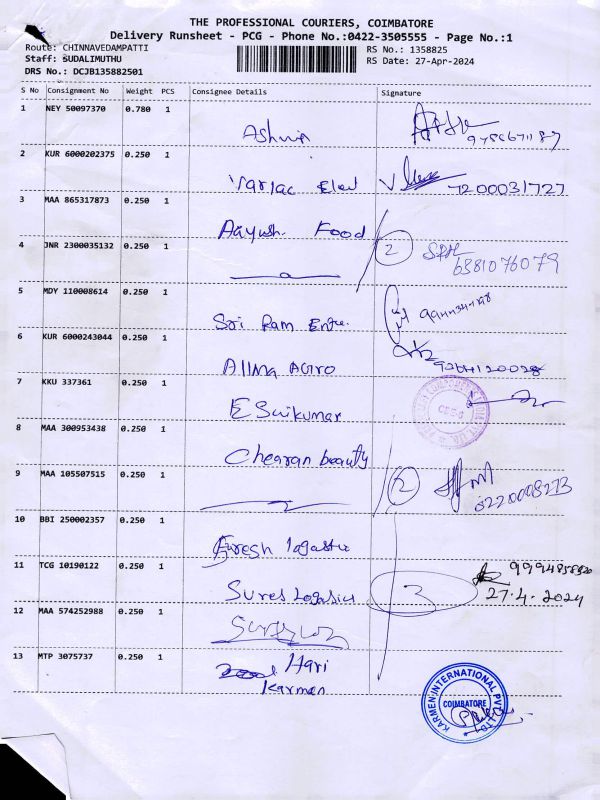 THE PROFESSIONAL COURIERS, COIMBATORE
Delivery Runsheet - PCG - Phone No.:0422-3505555 - Page No.:1
Route: CHINNAVEDAMPATTI
RS No.: 1358825
Staff: SUDALIMUTHU
RS Date: 27-Apr-2024
DRS No.: DCJB135882501
S No Consignment No Weight PCS Consignee Details Signature
1 NEY 50097370 0.780 1
Ashwin
2 KUR 6000202375 0.250 1
7200031727
3 MAA 865317873 0.250 1
Aayush Food
4 JNR 2300035132 0.250 1
2
6381076079
5 MDY 110008614 0.250 1
Sri Ram Ente.
6 KUR 6000243044 0.250 1
7 KKU 337361 0.250 1
E Saikumar
8 MAA 300953438 0.250 1
Chearan beauty
9 MAA 105507515 0.250 1
2
10 BBI 250002357 0.250 1
11 TCG 10190122 0.250 1
3
27.4.2024
12 MAA 574252988 0.250 1
13 MTP 3075737 0.250 1
Hari
Karmen
KARMEN INTERNATIONAL PVT LTD
COIMBATORE